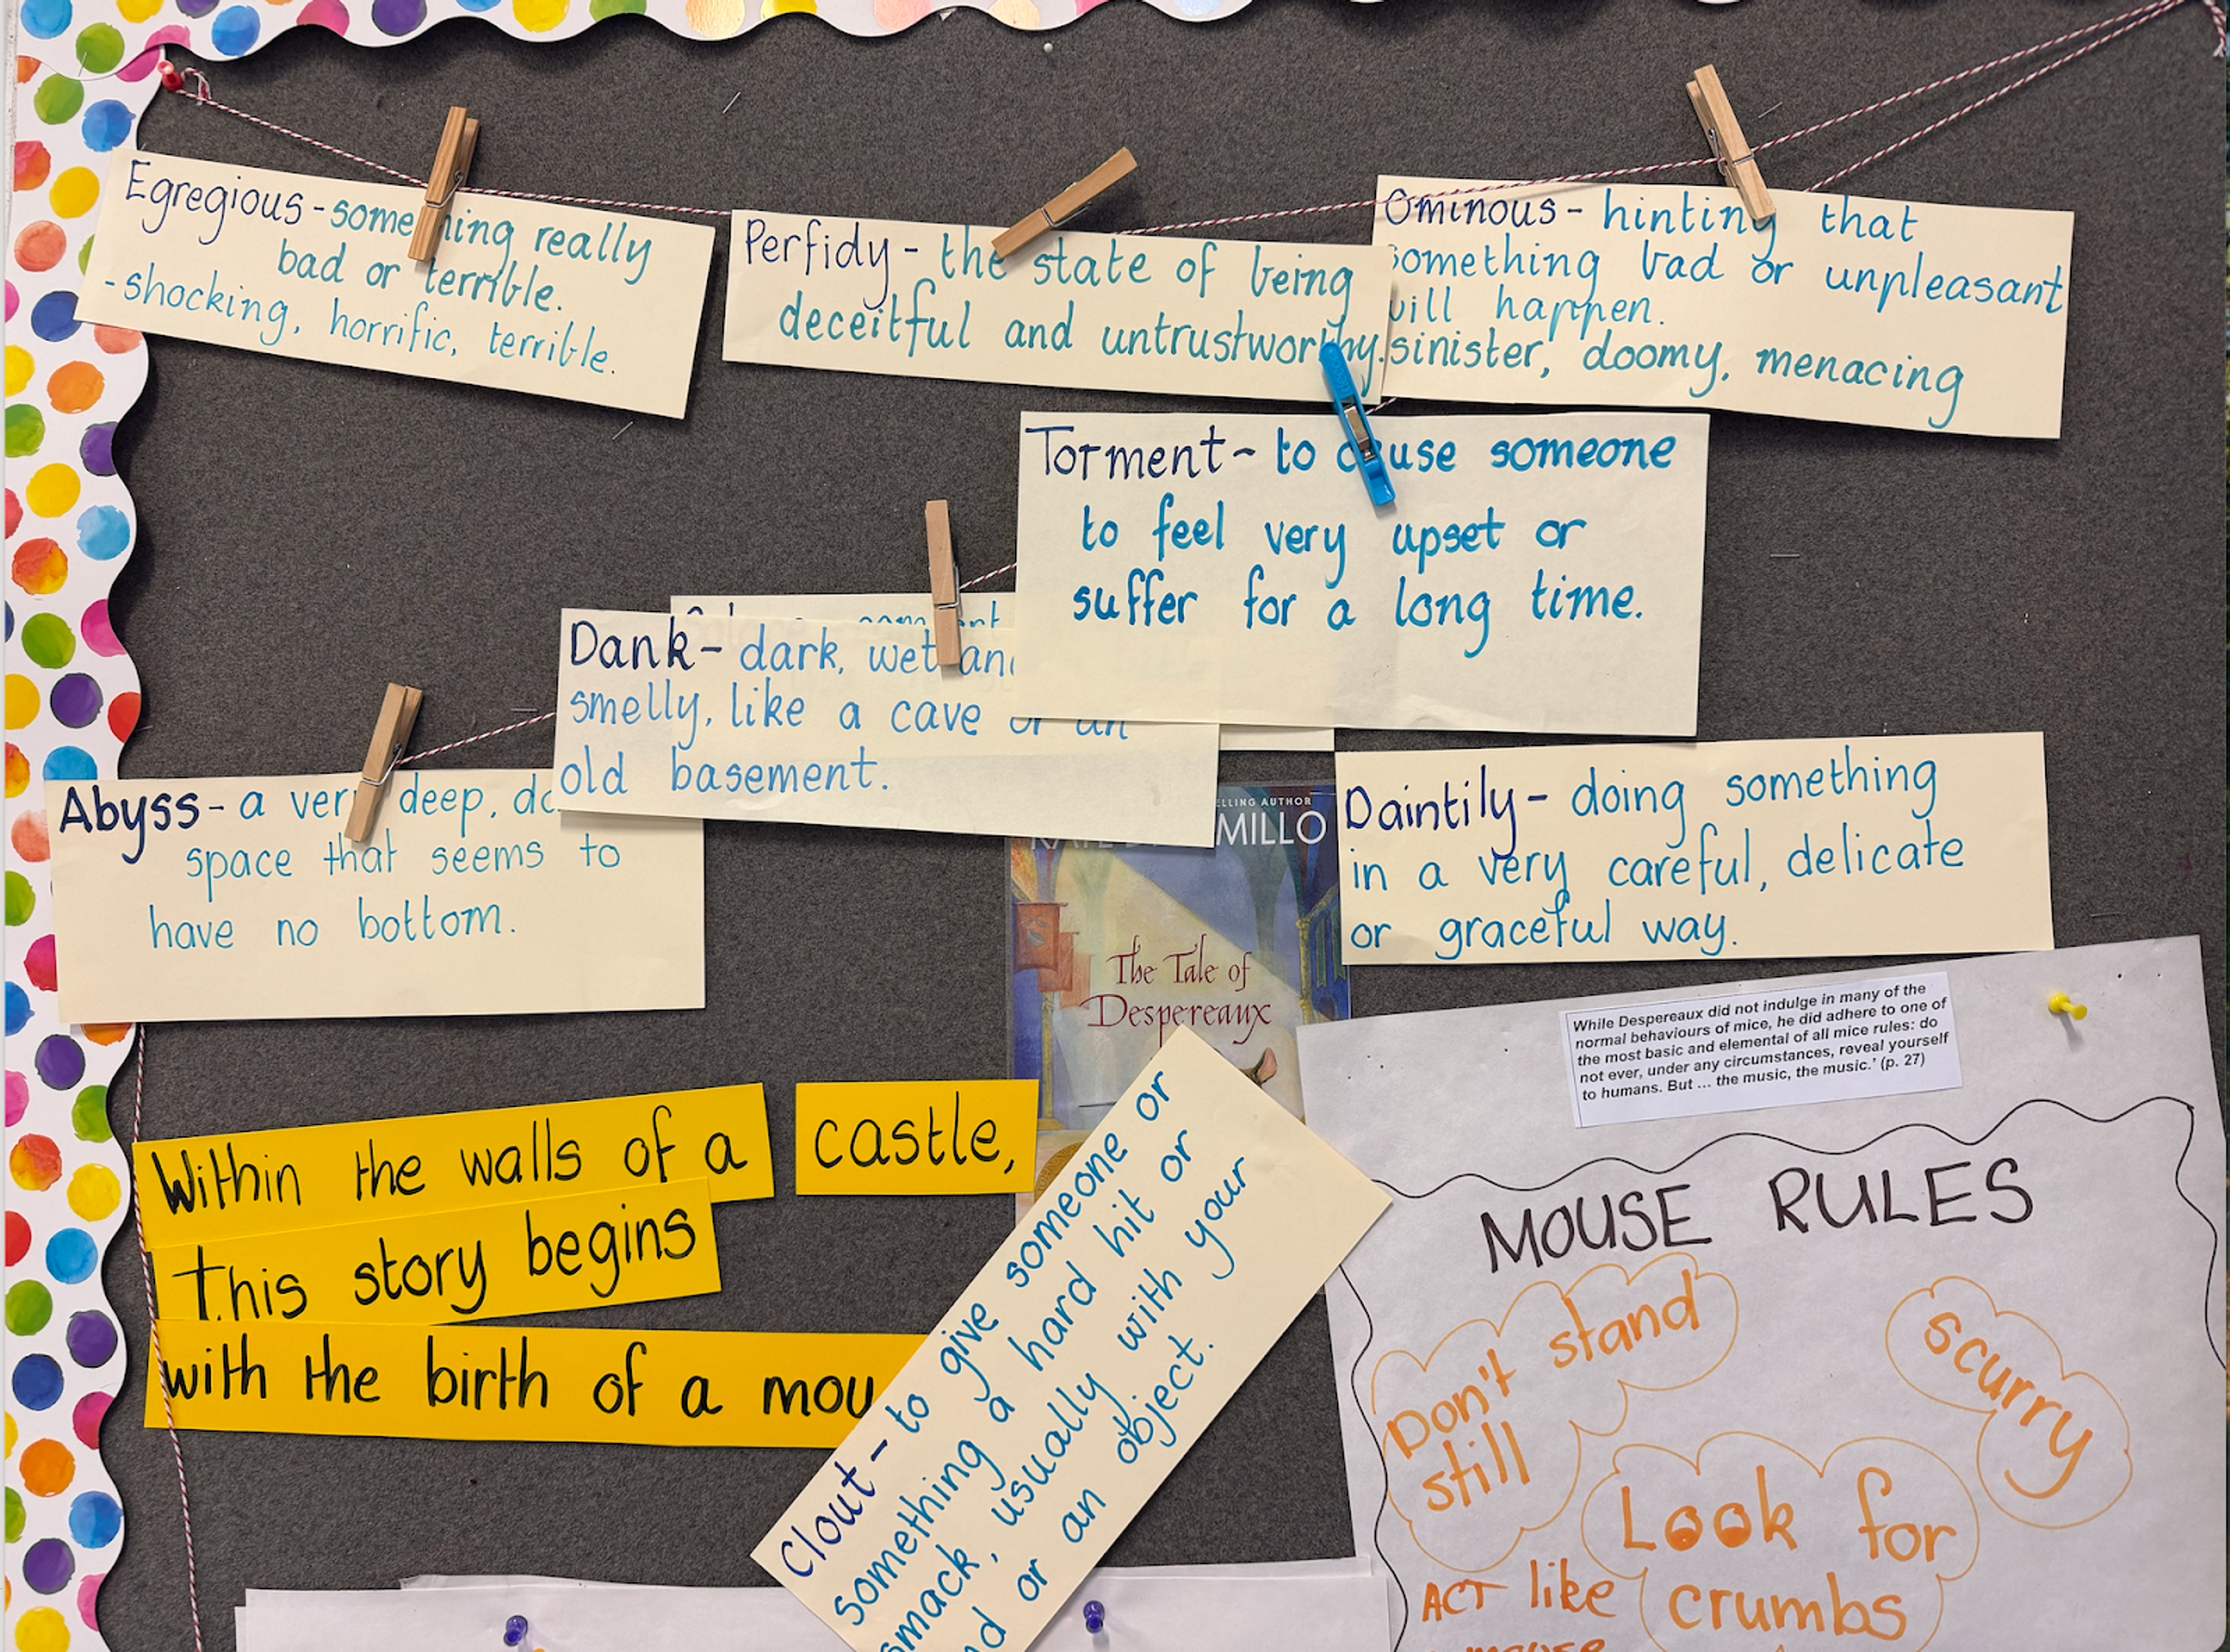 Egregious - something really
bad or terrible.
- shocking, horrific, terrible.
Perfidy - the state of being
deceitful and untrustworthy.
Ominous - hinting that
something bad or unpleasant
will happen.
sinister, doomy, menacing
Torment - to cause someone
to feel very upset or
suffer for a long time.
Dank - dark, wet and
smelly, like a cave or an
old basement.
Abyss - a very deep,
space that seems to
have no bottom.
Daintily - doing something
in a very careful, delicate
or graceful way.
ELLING AUTHOR
MILLO
The Tale of
Despereaux
While Despereaux did not indulge in many of the
normal behaviours of mice, he did adhere to one of
the most basic and elemental of all mice rules: do
not ever, under any circumstances, reveal yourself
to humans. But ... the music, the music.' (p. 27)
Within the walls of a castle,
this story begins
with the birth of a mou
Clout - to give someone or
something a hard hit or
smack, usually with your
or an object.
MOUSE RULES
Don't stand
still
scurry
Look for
crumbs
ACT like